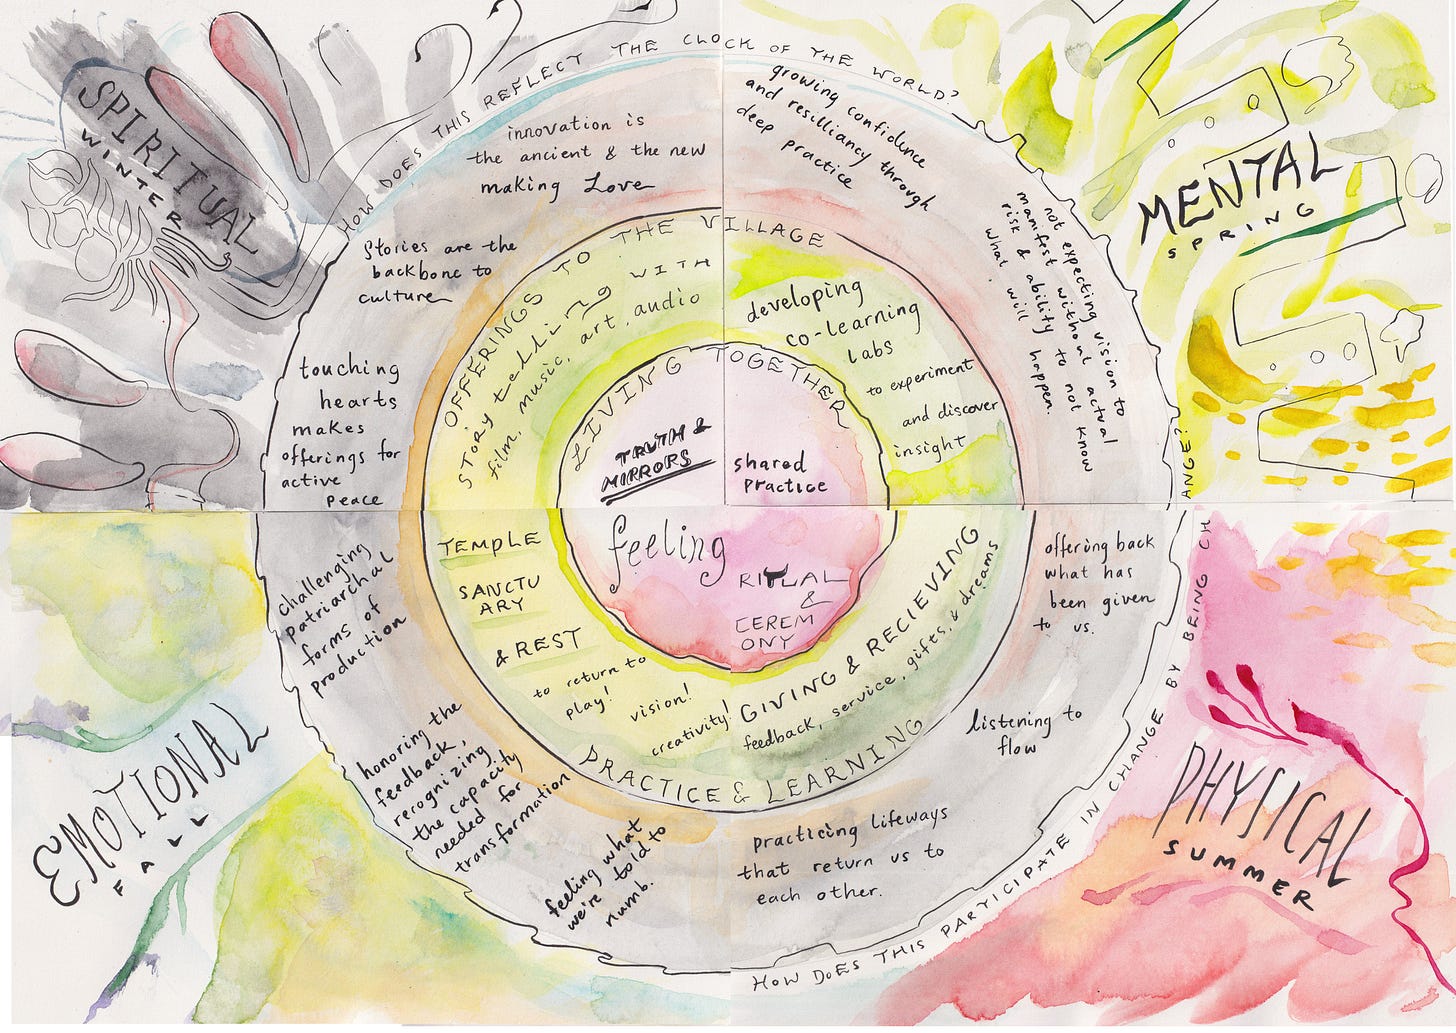 HOW DOES THIS REFLECT THE CLOCK OF THE WORLD?
SPIRITUAL
WINTER
MENTAL
SPRING
innovation is
the ancient & the new
making Love
Stories are the
backbone to
culture
touching
hearts
makes
offerings for
active
Peace
growing confidence
and resilliancy through
deep practice
not expecting vision to
manifest without actual
risk & ability to not know
what will happen.
OFFERINGS TO THE VILLAGE
Story telling with
film, music, art, audio
developing
co-learning
labs
to experiment
and discover
insight
LIVING TOGETHER
TRUTH &
MIRRORS
shared
practice
feeling
RITUAL
&
CEREM
ONY
TEMPLE
SANCTU
ARY
& REST
to return to
play!
vision!
creativity!
GIVING & RECIEVING
feedback, service, gifts, & dreams
PRACTICE & LEARNING
challenging
patriarchal
forms of
production
honoring the
feedback,
recognizing
the capacity
needed for
transformation
feeling what
we're told to
numb.
offering back
what has
been given
to us.
listening to
flow
practicing lifeways
that return us to
each other.
EMOTIONAL
FALL
PHYSICAL
SUMMER
HOW DOES THIS PARTICIPATE IN CHANGE BY BEING CH
ANGE?